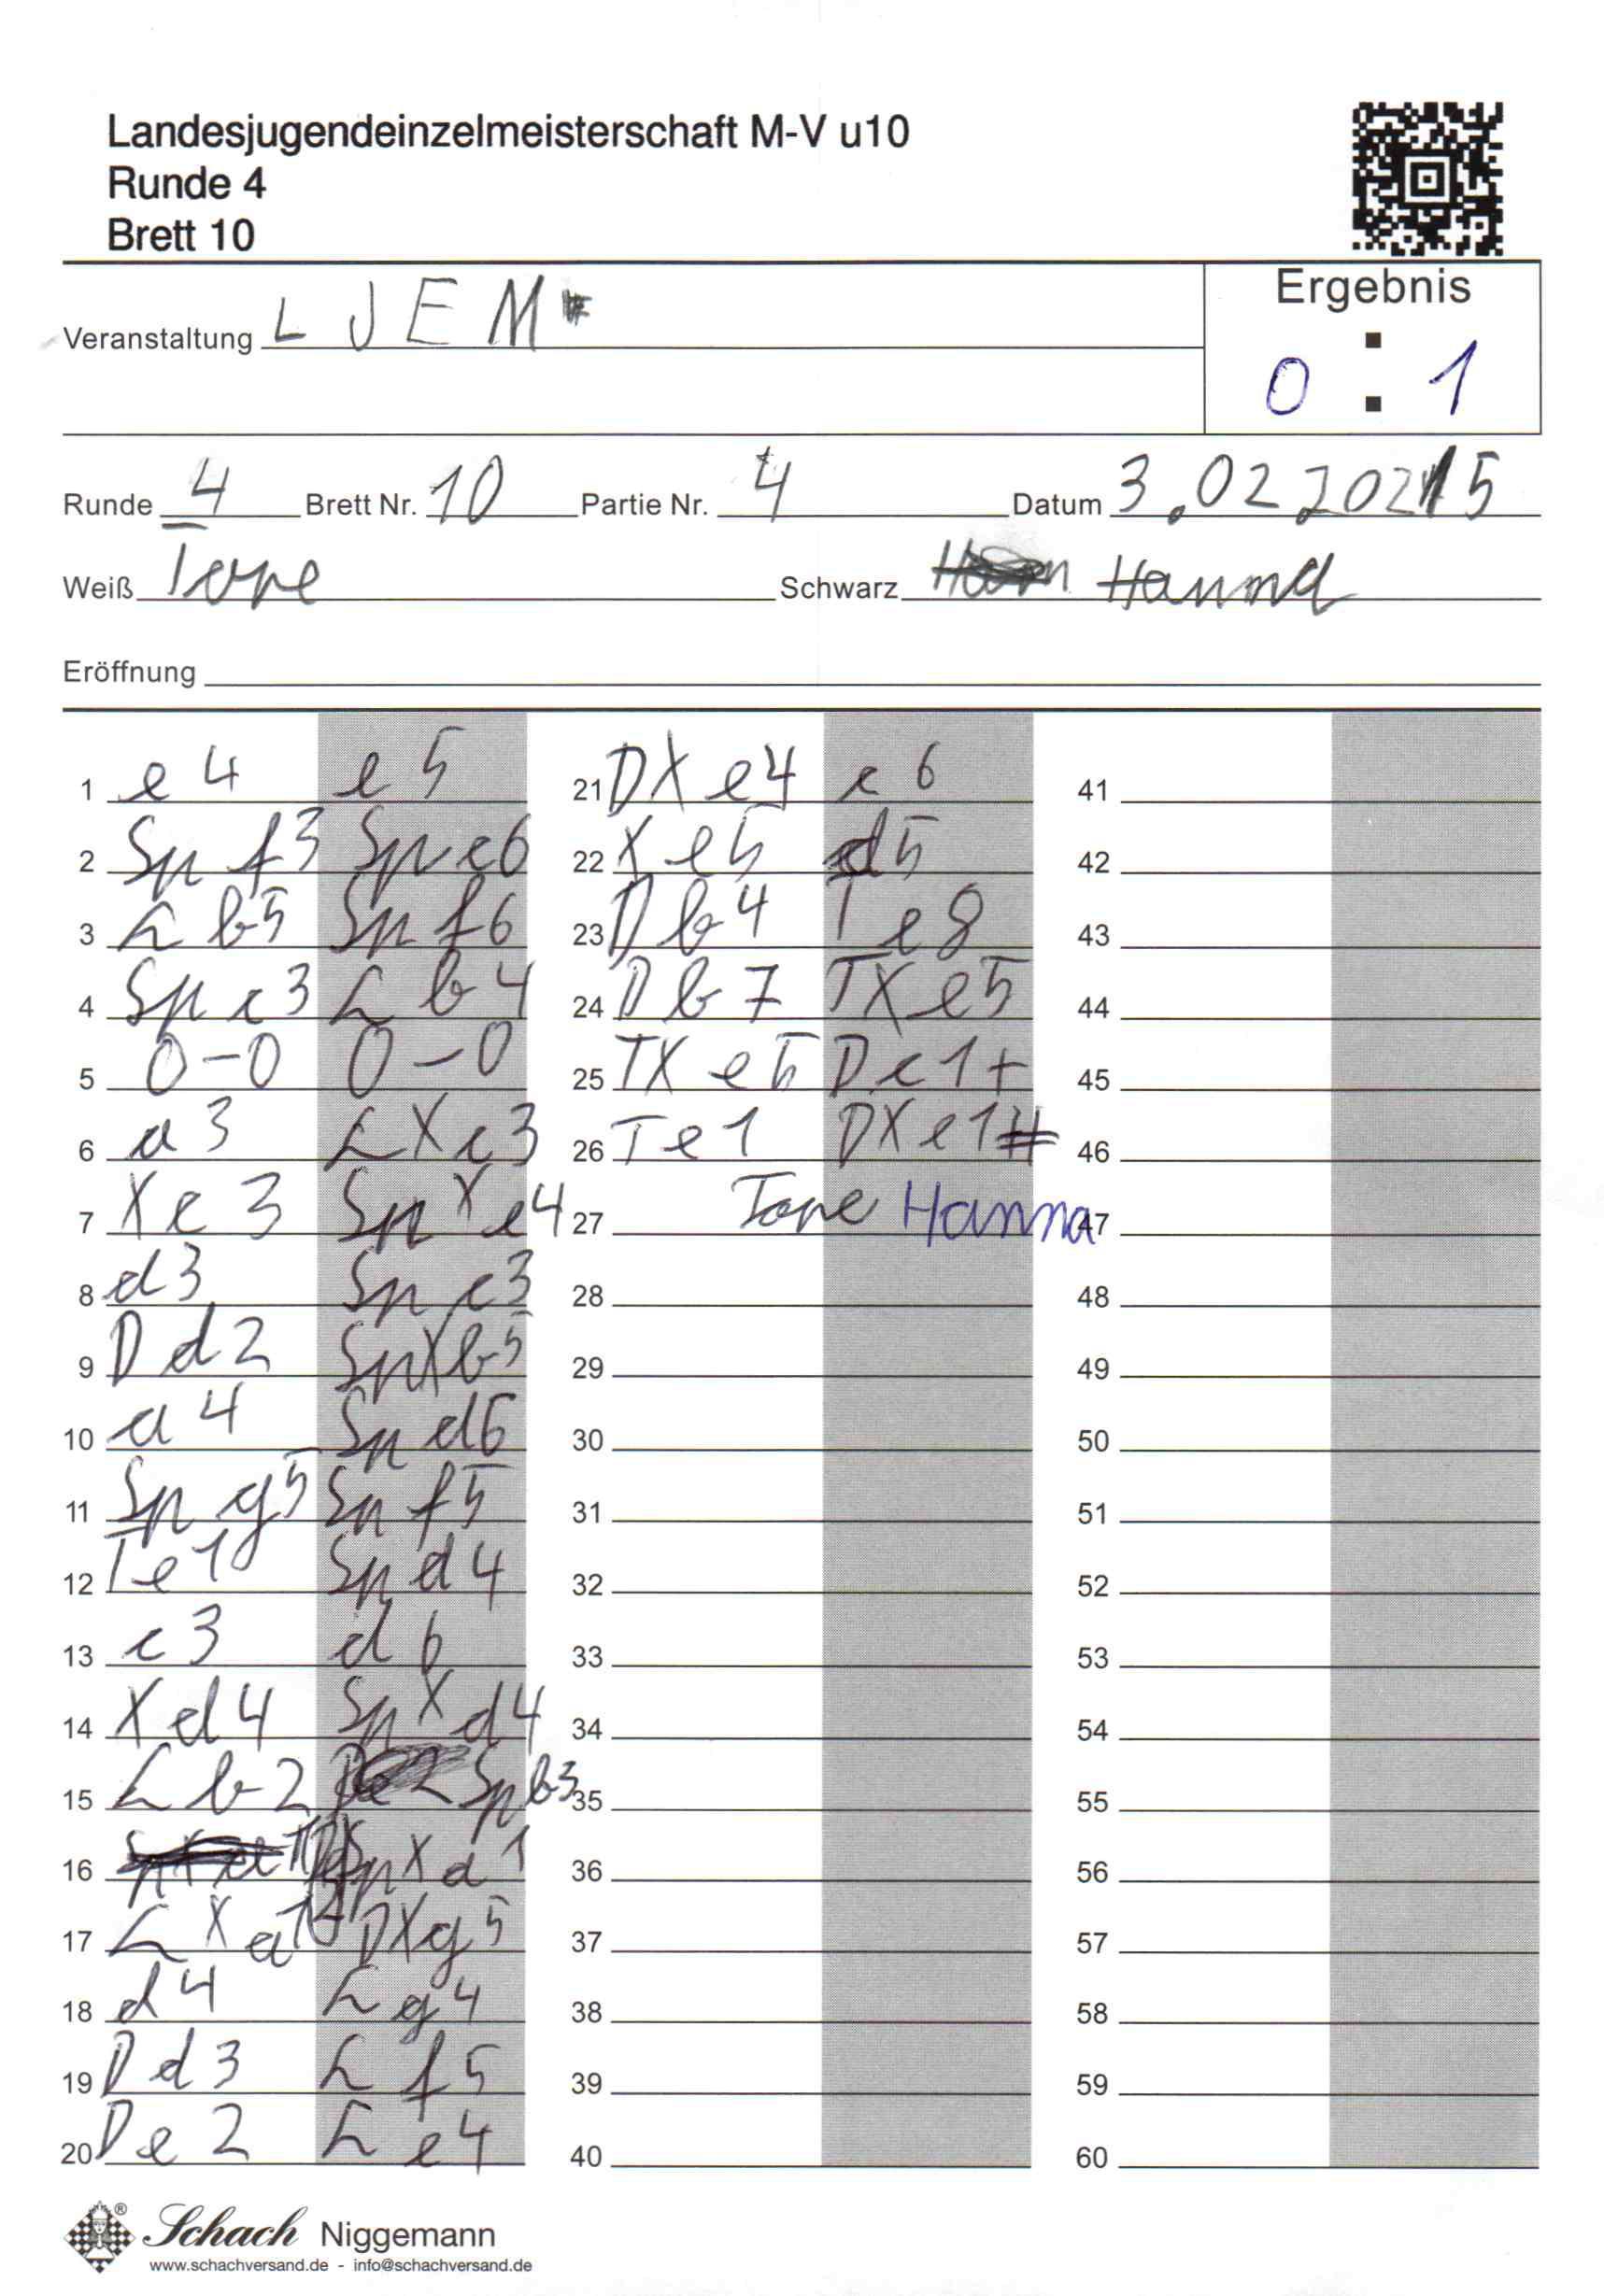 Landesjugendeinzelmeisterschaft M-V u10
Runde 4
Brett 10
Ergebnis
Veranstaltung L J E M
0 : 1
Runde 4 Brett Nr. 10 Partie Nr. 4 Datum 3.02.2025
Weiß Tore Schwarz Hanna
Eröffnung
1 e4 e5
2 Sp f3 Sp c6
3 L b5 Sp f6
4 Sp c3 L b4
5 0-0 0-0
6 a3 L X c3
7 X c3 Sp X e4
8 d3 Sp c3
9 D d2 Sp X b5
10 a4 Sp d6
11 Sp g5 Sp f5
12 T e1 Sp d4
13 c3 d6
14 X d4 Sp X d4
15 L b2 Sp b3
16 Sp X a1
17 L X a1 D X g5
18 d4 L g4
19 D d3 L f5
20 D e2 L e4
21 D X e4 c6
22 X e5 d5
23 D b4 T e8
24 D b7 T X e5
25 T X e5 D c1+
26 T e1 D X e1#
27 Tore Hanna
28
29
30
31
32
33
34
35
36
37
38
39
40
41
42
43
44
45
46
47
48
49
50
51
52
53
54
55
56
57
58
59
60
Schach Niggemann
www.schachversand.de - info@schachversand.de